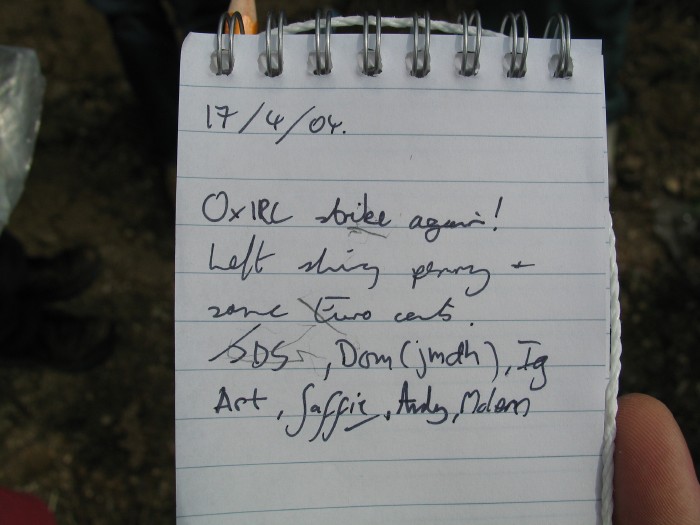 17/4/04.
OxIRC strike again!
Left shiny penny +
some Euro cents.
SDS, Dom (jmdh), Ig
Art, Saffie, Andy,